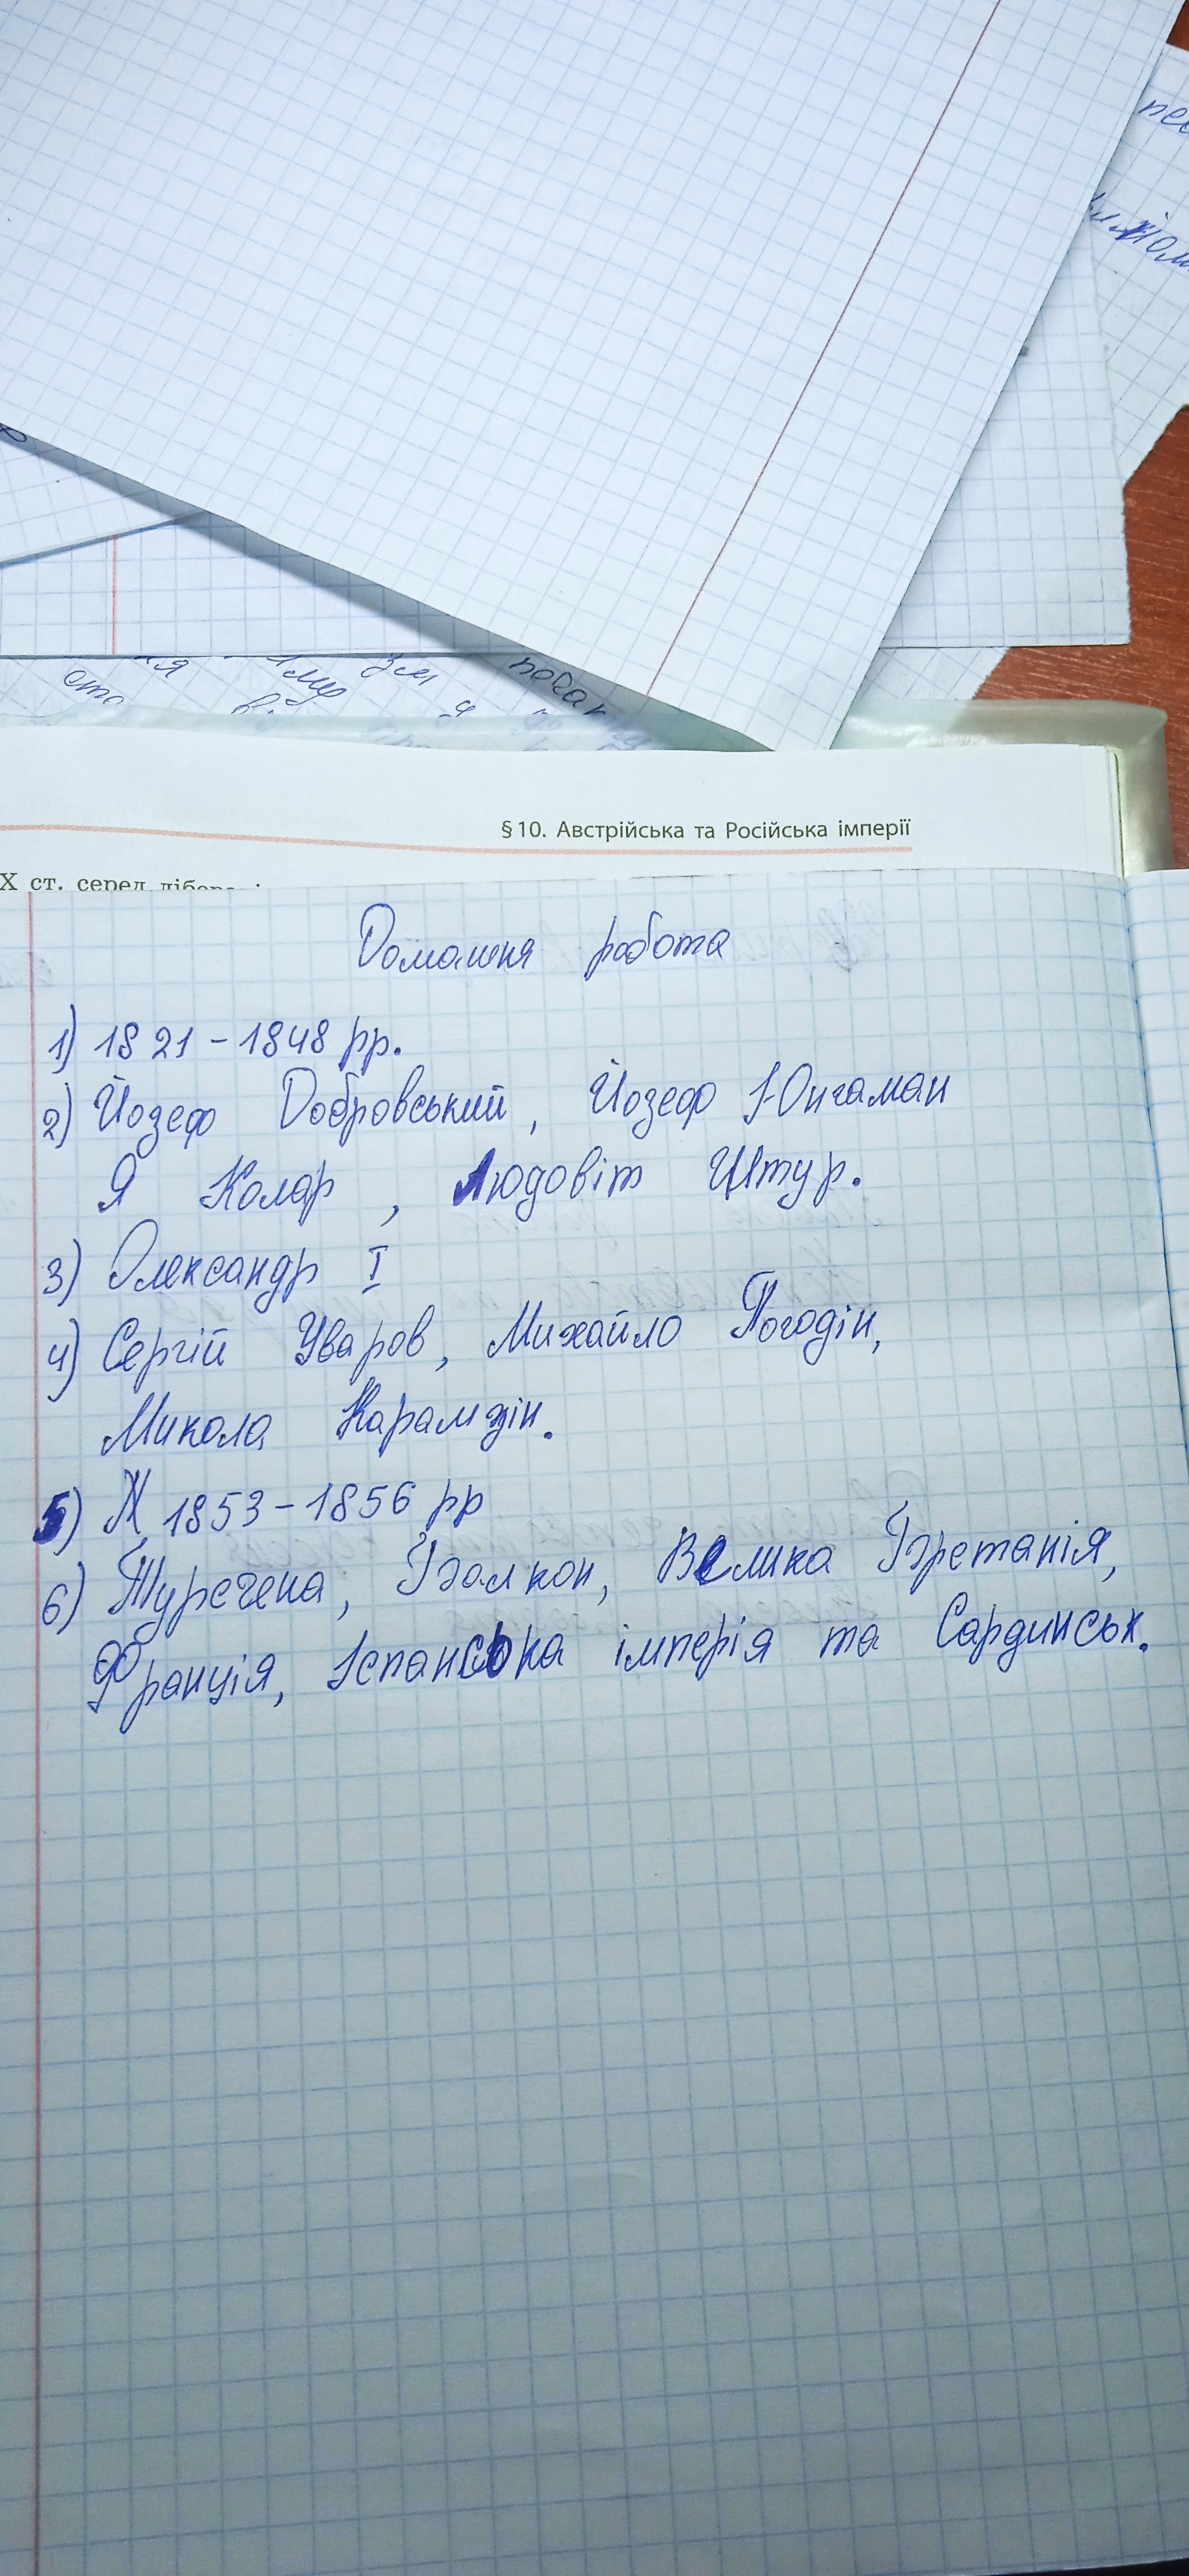 § 10. Австрійська та Російська імперії
Х ст. серед
Домашня робота
1) 1821 - 1848 рр.
2) Йозеф Добровський, Йозеф Юнгаман
Я Колар, Людовіт Штур.
3) Олександр I
4) Сергій Уваров, Михайло Погодін,
Микола Карамзін.
5) 1853 - 1856 рр
6) Туреччена, Балкон, Велика Бретанія,
Франція, Іспанська імперія та Сардинськ.